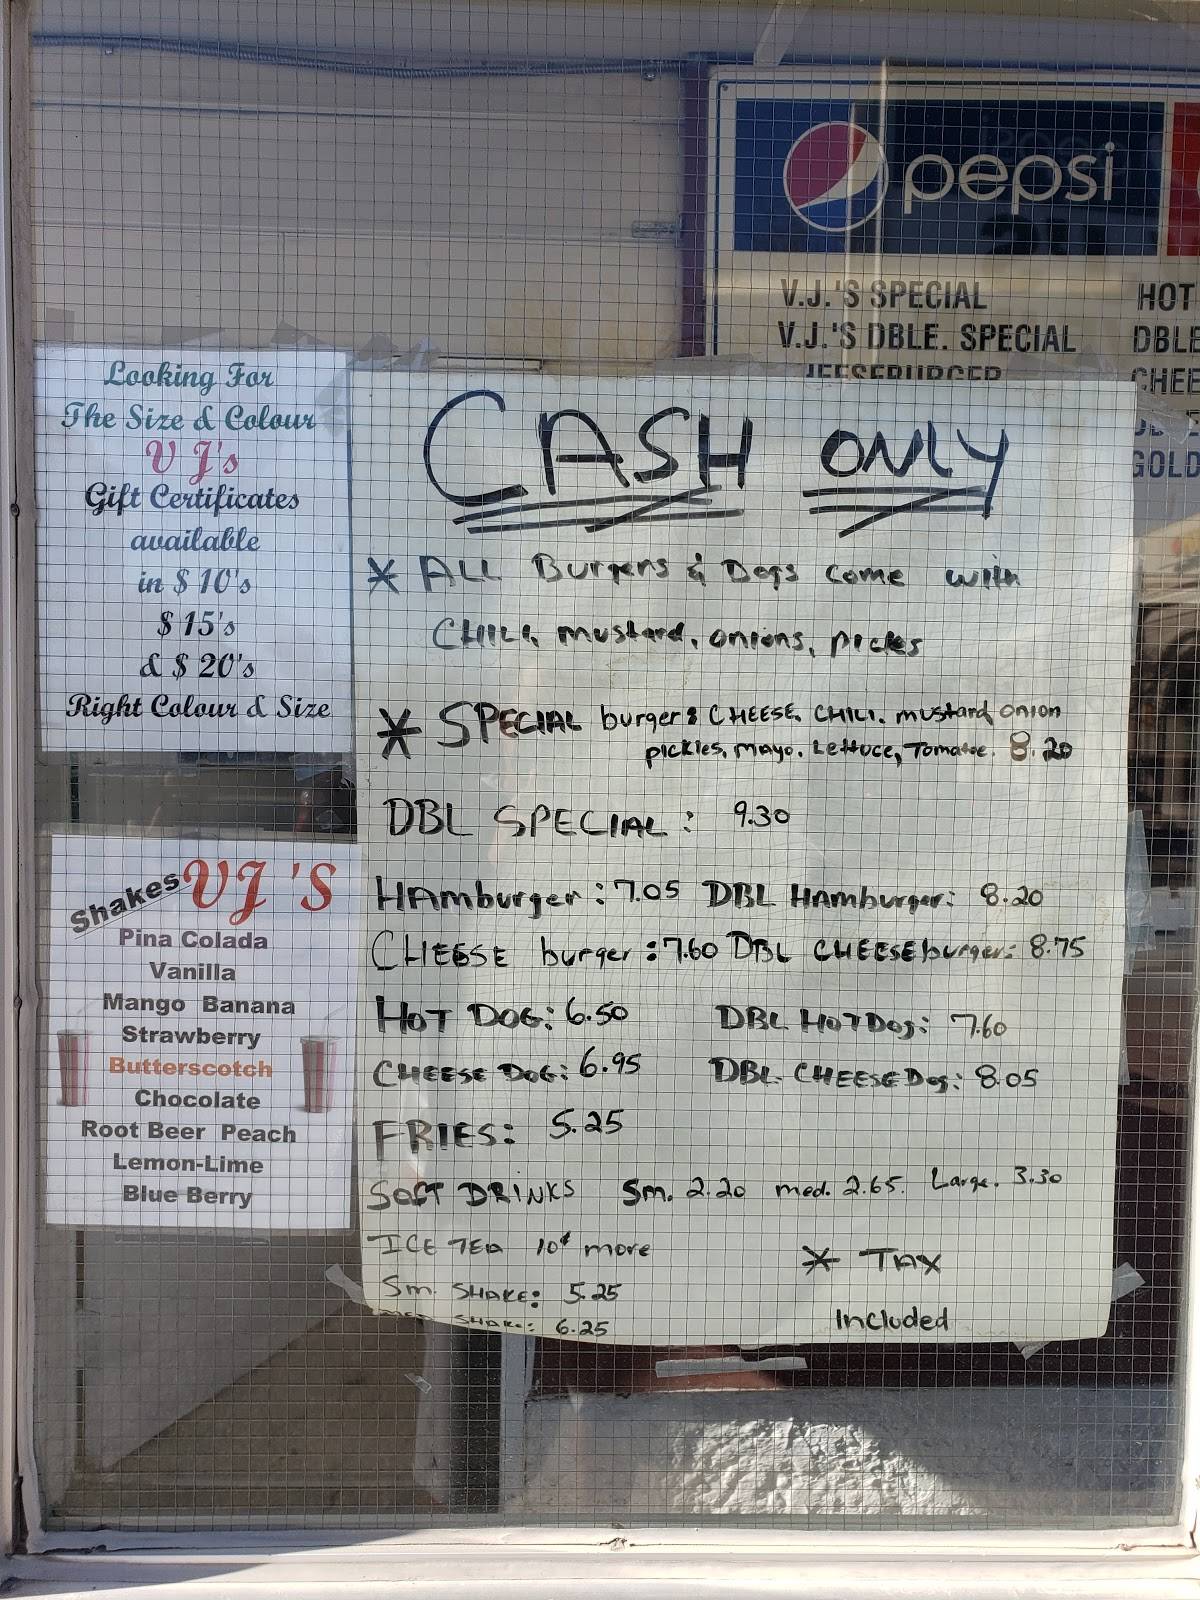 pepsi
V.J.'S SPECIAL HOT
V.J.'S DBLE. SPECIAL DBLE
CHEE
GOLD
Looking For
The Size & Colour
VJ's
Gift Certificates
available
in $ 10's
$ 15's
& $ 20's
Right Colour & Size
Shakes VJ'S
Pina Colada
Vanilla
Mango Banana
Strawberry
Butterscotch
Chocolate
Root Beer Peach
Lemon-Lime
Blue Berry
CASH ONLY
* ALL Burgers & Dogs come with
CHILI, mustard, onions, picles
* SPECIAL burger: CHEESE, CHILI, mustard, onion
pickles, mayo, Lettuce, Tomatoe. 8.20
DBL SPECIAL: 9.30
HAmburger: 7.05 DBL HAmburger: 8.20
CHEESE burger: 7.60 DBL CHEESEburger: 8.75
HOT DOG: 6.50 DBL HOT Dog: 7.60
CHEESE DOG: 6.95 DBL. CHEESE Dog: 8.05
FRIES: 5.25
SOFT DRINKS Sm. 2.20 med. 2.65. Large. 3.30
ICE TEA 10¢ more * TAX
Sm. SHAKE: 5.25
SHAKE: 6.25 Included